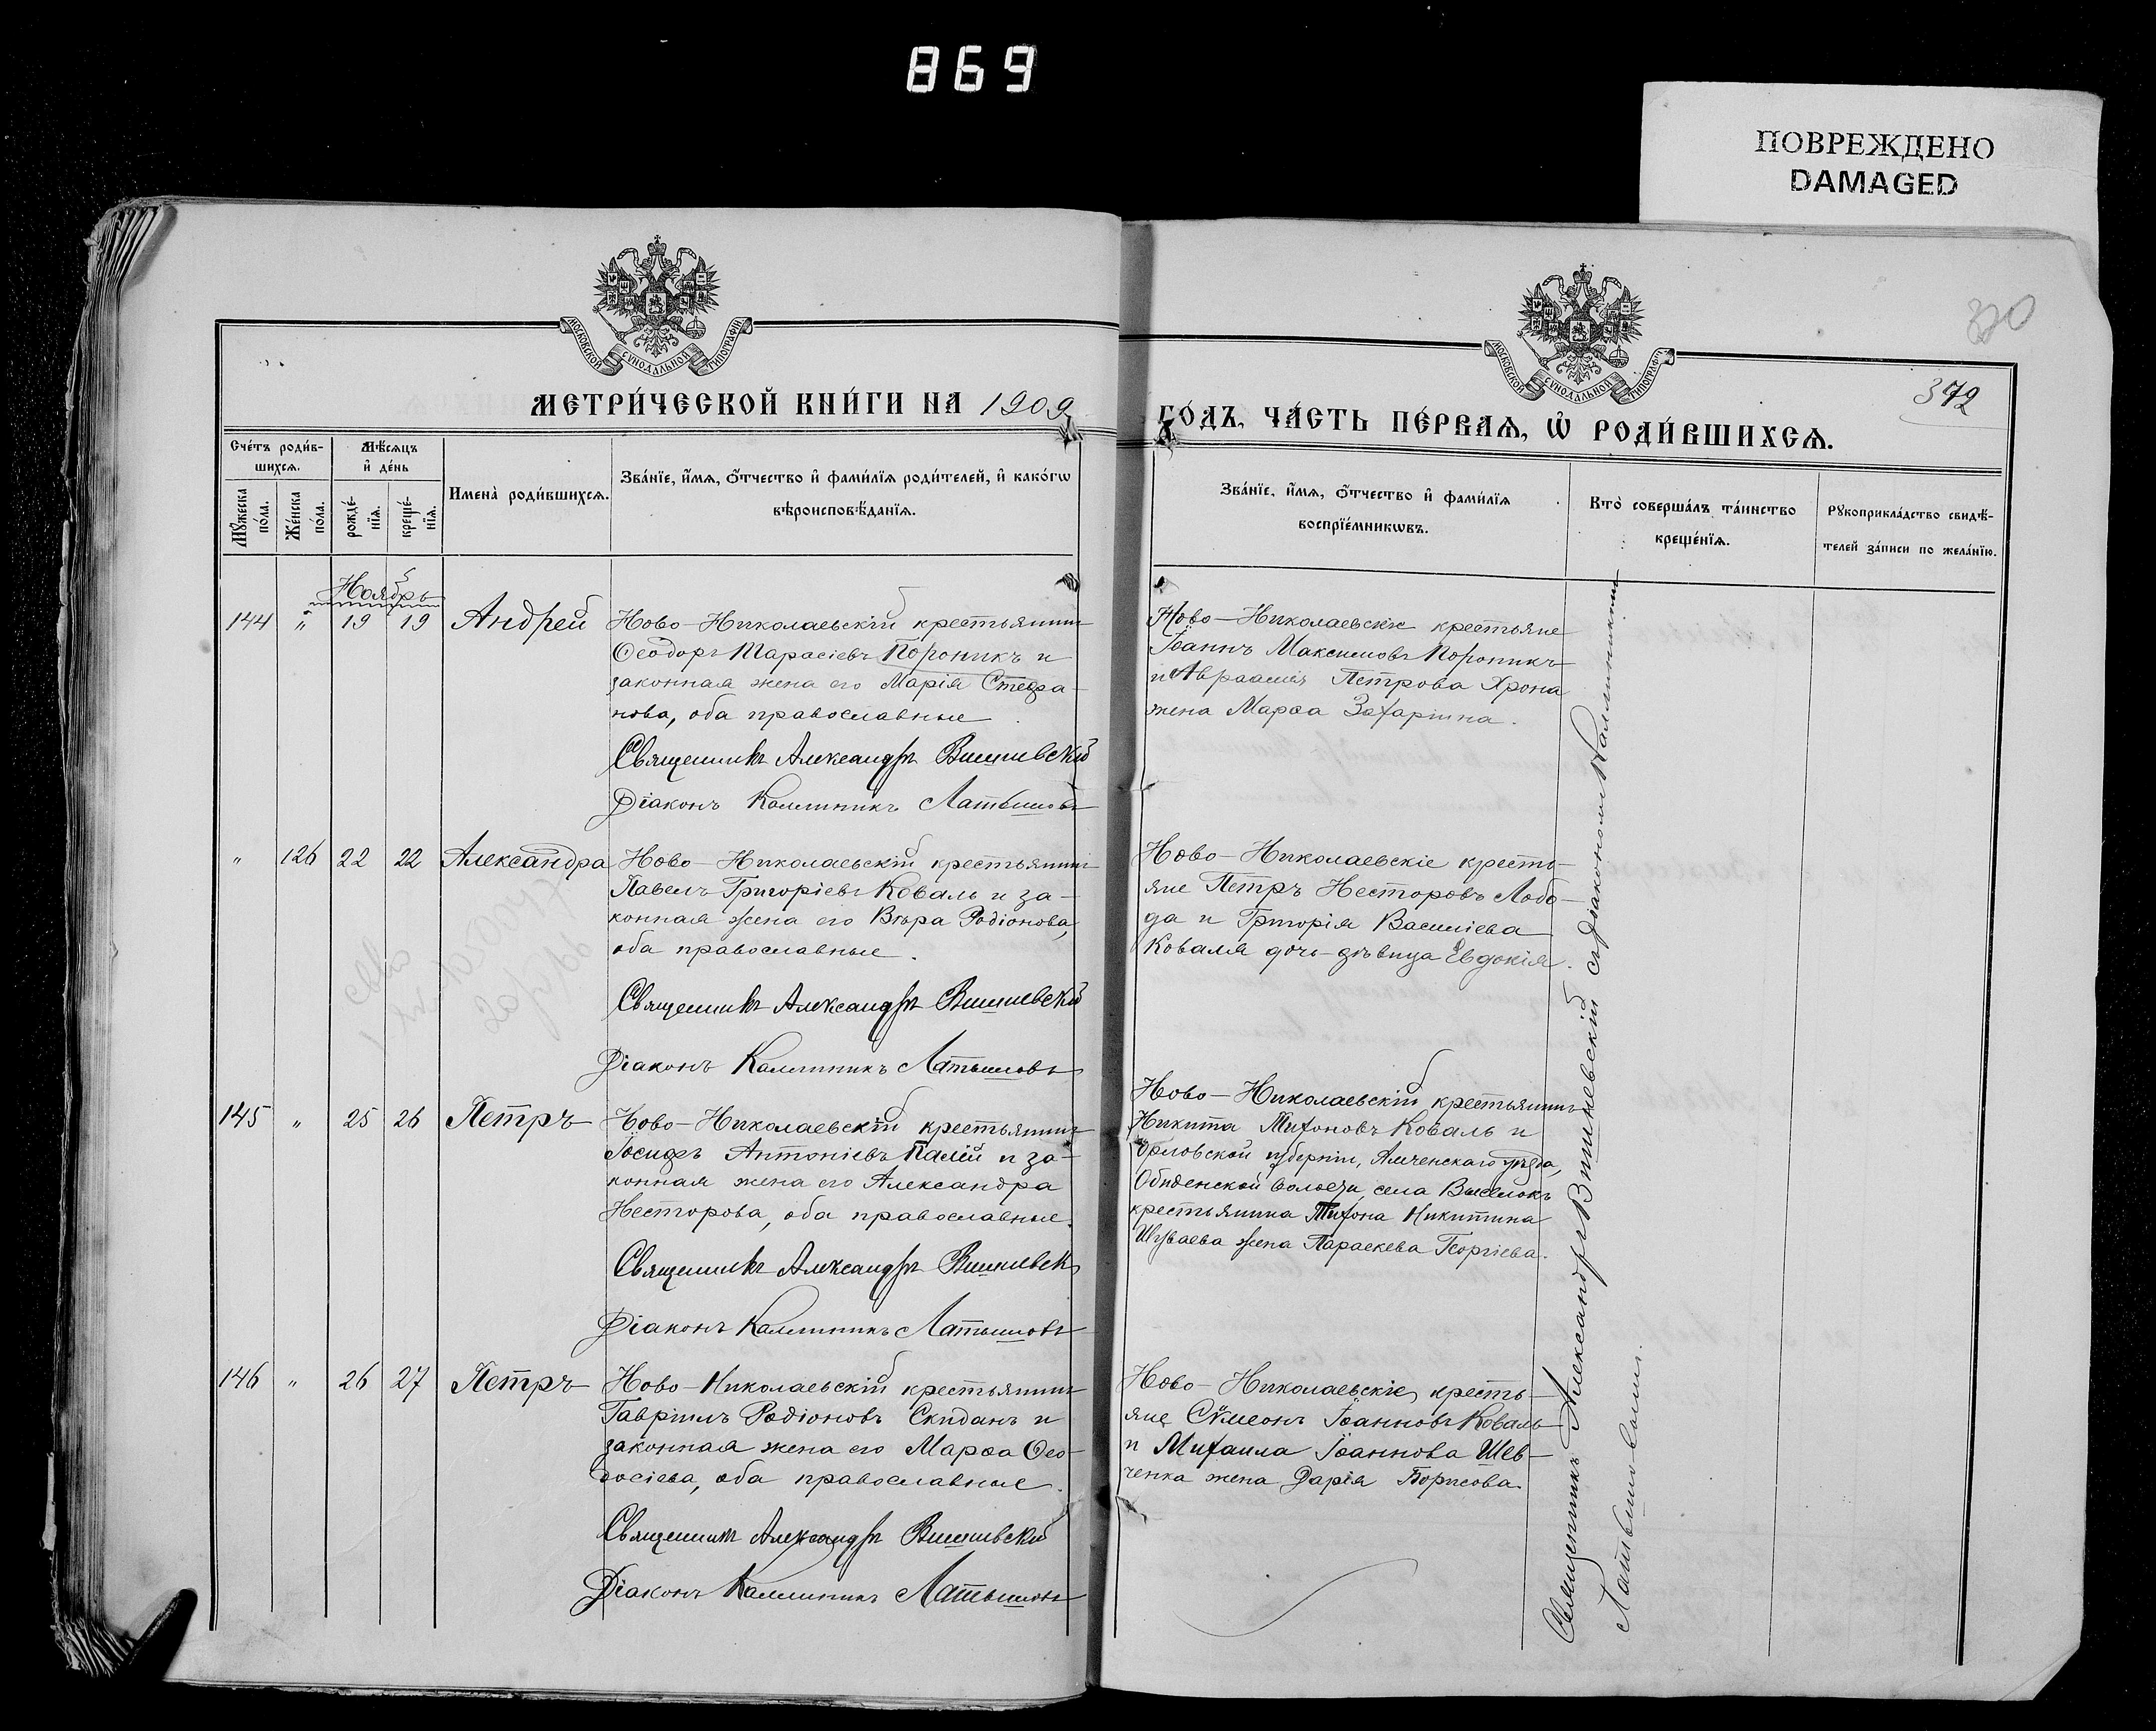 869
ПОВРЕЖДЕНО
DAMAGED
МОСКОВСКОЙ СѴНОДАЛЬНОЙ ТИПОГРАФІИ
МОСКОВСКОЙ СѴНОДАЛЬНОЙ ТИПОГРАФІИ
372
МЕТРИ́ЧЕСКОЙ КНИ́ГИ НА 1909
ГО́ДЪ, ЧА́СТЬ ПЕ́РВАѦ, Ѡ҆ РОДИ́ВШИХСѦ.
Сче́тъ роди́в-
шихсѧ.
Мѣ́сѧцъ
и҆ де́нь
Мꙋ́жеска
по́ла.
Же́нска
по́ла.
рожде́-
нїѧ.
креще́-
нїѧ.
Имена̀ роди́вшихсѧ.
Зва́нїе, и҆́мѧ, ѻ҆́тчество и҆ фами́лїѧ роди́телей, и҆ како́гѡ
вѣроисповѣ́данїѧ.
Зва́нїе, и҆́мѧ, ѻ҆́тчество и҆ фами́лїѧ
воспрїе́мникѡвъ.
Кто̀ соверша́лъ та́инство
креще́нїѧ.
Рꙋкоприкла́дство свидѣ́-
телей за́писи по жела́нїю.
Ноябрь
144 " 19 19 Андрей
Ново-Николаевскій крестьянинъ
Ѳеодоръ Тарасіевъ Пороникъ и
законная жена его Марія Стефа-
нова, оба православные
Священникъ Александръ Вишневскій
Діаконъ Каллиникъ Латышовъ
Ново-Николаевскіе крестьяне
Іоаннъ Максимовъ Пороникъ
и Авраамія Петрова Хрона
жена Марѳа Захаріина.
" 126 22 22 Александра
Ново-Николаевскій крестьянинъ
Павелъ Григоріевъ Коваль и за-
конная жена его Вѣра Родіонова,
оба православные.
Священникъ Александръ Вишневскій
Діаконъ Каллиникъ Латышовъ
Ново-Николаевскіе кресть-
яне Петръ Несторовъ Лобо-
да и Григорія Василіева
Коваля дочь-дѣвица Евдокія.
145 " 25 26 Петръ
Ново-Николаевскій крестьянинъ
Іосифъ Антоніевъ Палій и за-
конная жена его Александра
Несторова, оба православные.
Священникъ Александръ Вишневск
Діаконъ Каллиникъ Латышовъ
Ново-Николаевскій крестьянинъ
Никита Тихоновъ Коваль и
Орловской губерніи, уѣзда,
волости, села Выселокъ
крестьянина Тихона Никитина
жена Параскева Георгіева.
146 " 26 27 Петръ
Ново-Николаевскій крестьянинъ
Гавріилъ Родіоновъ Скиданъ и
законная жена его Марѳа Ѳео-
досіева, оба православные.
Священникъ Александръ Вишневскій
Діаконъ Каллиникъ Латышовъ
Ново-Николаевскіе кресть-
яне Сѵмеонъ Іоанновъ Коваль
и Михаила Іоаннова Шев-
ченка жена Дарія Борисова.
Священникъ Александръ Вишневскій съ діакономъ Каллиникомъ
Латышовымъ.